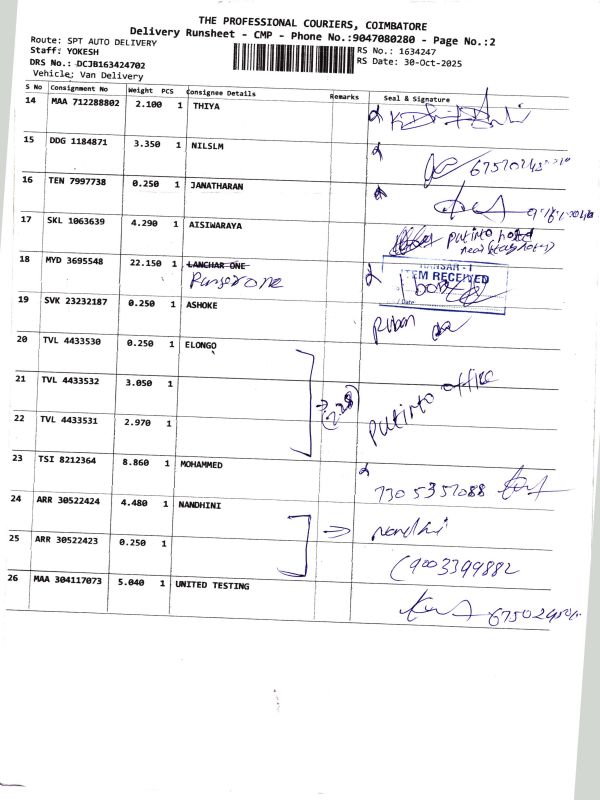 THE PROFESSIONAL COURIERS, COIMBATORE
Delivery Runsheet - CMP - Phone No.:9047080280 - Page No.:2
Route: SPT AUTO DELIVERY
Staff: YOKESH
RS No.: 1634247
DRS No.: DCJB163424702
RS Date: 30-Oct-2025
Vehicle; Van Delivery
S No Consignment No Weight PCS Consignee Details Remarks Seal & Signature
14 MAA 712288802 2.100 1 THIYA
15 DDG 1184871 3.350 1 NILSLM
16 TEN 7997738 0.250 1 JANATHARAN
17 SKL 1063639 4.290 1 AISIWARAYA
putinto
18 MYD 3695548 22.150 1 LANCHAR ONE
ITEM RECEIVED
Date
19 SVK 23232187 0.250 1 ASHOKE
20 TVL 4433530 0.250 1 ELONGO
21 TVL 4433532 3.050 1
putinto office
22 TVL 4433531 2.970 1
23 TSI 8212364 8.860 1 MOHAMMED
7305357088
24 ARR 30522424 4.480 1 NANDHINI
Nandhi
25 ARR 30522423 0.250 1
9003399882
26 MAA 304117073 5.040 1 UNITED TESTING